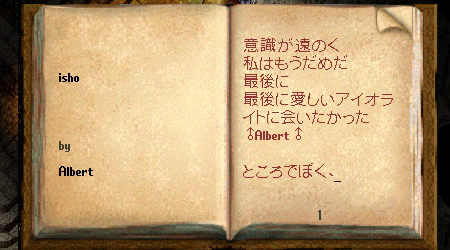 isho
by
Albert
意識が遠のく
私はもうだめだ
最後に
最後に愛しいアイオラ
イトに会いたかった
↑Albert ↑
ところでぼく、_
1